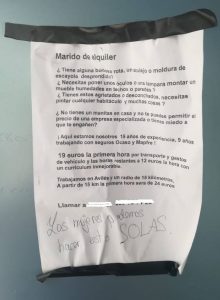 Marido de alquiler
¿ Tiene alguna baldosa rota, un azulejo o moldura de
escayola desprendida?
¿ Necesitas poner unos apliques o una lámpara montar un
mueble humedades en techos o paredes ?
¿ Tienes estos agrietados o desconchados, necesitas
pintar cualquier habitáculo y muchas cosas ?
¿ No tienes un manitas en casa y no te puedes permitir el
precio de una empresa especializada o tienes miedo a
que te engañen?
¡ Aquí estamos nosotros 15 años de experiencia, 9 años
trabajando con seguros Ocaso y Mapfre !
19 euros la primera hora por transporte y gastos
de vehículo y las horas restantes a 12 euros la hora con
un currículum inmejorable.
Trabajamos en Avilés y un radio de 15 kilómetros,
A partir de 15 km la primera hora será de 24 euros
Llamar a
Las mujeres podemos
hacer esto SOLAS